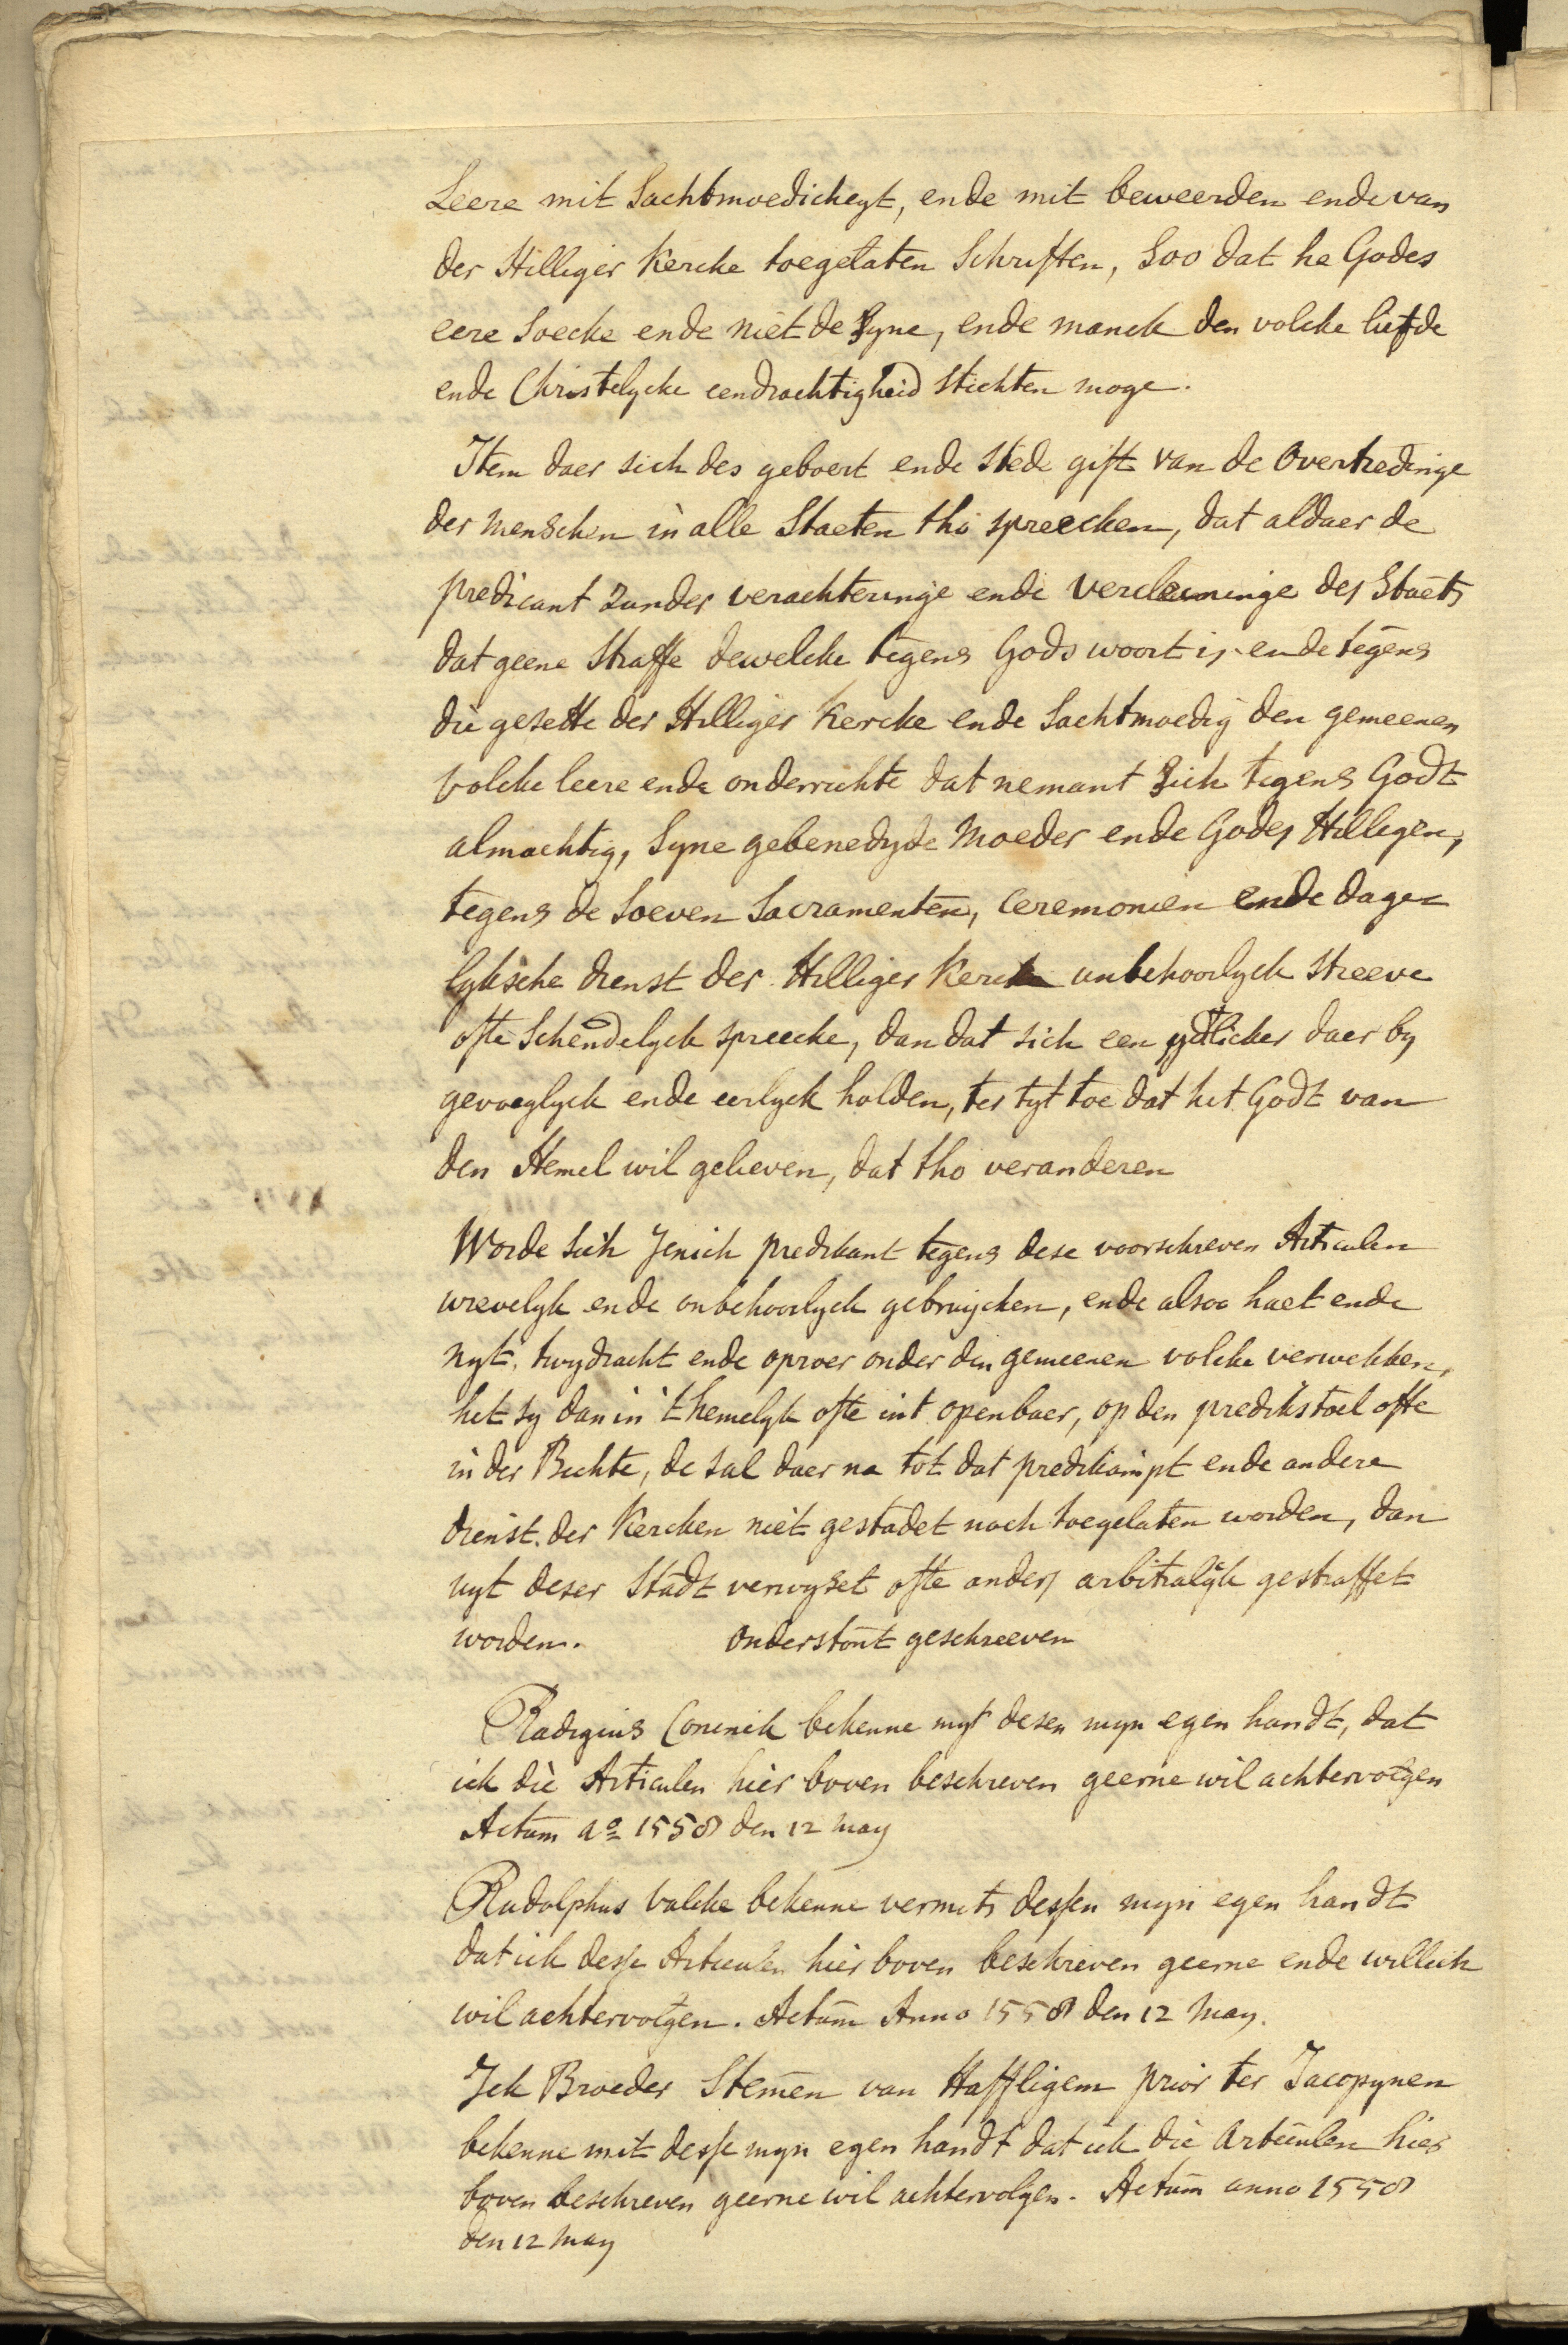 Leere mit Sachtmoedicheyt, ende mit beweerden ende van
der Hilliger Kercke toegelaten Schriften, Soo dat he Godes
eere Soecke ende niet de Syne, ende manck den volcke liefde
ende Christelycke eendrachtigheid Stichten moge.
Item daer sich des geboert ende Stede gift van de Overtredinge
der menschen in alle Staeten tho spreecken, dat aldaer de
predicant zunder verachteringe ende vercleninge des Staets
dat geene Straffe dewelcke tegens Gods woort is ende tegens
die gesette der Hilliger Kercke ende Sachtmoedig den gemeenen
volcke leere ende onderrichte dat nemant Sich tegens Godt
almachtig, Syne gebenedyde Moeder ende Godes Hilligen,
tegens de Soeven Sacramenten, Ceremonien ende dage=
lyksche dienst der Hilliger Kercke unbehoorlyck Streeve
ofte Schendelyck spreecke, dan dat sich een ydlicker daer by
gevoeglyck ende eerlyck holden, ter tyt toe dat het Godt van
den Hemel wil gelieven, dat tho veranderen
Worde Sich Jenich predikant tegens dese voorschreven Articulen
wrevelyk ende onbehoorlyck gebruycken, ende alsoo haet ende
nyt, twydracht ende oproer onder den gemeenen volcke verwekken,
het sy dan in 't hemelyk ofte int openbaer, op den predikstoel ofte
in der Bichte, de sal daer na tot dat predikampt ende andere
dienst der Kercken niet gestadet noch toegelaten worden, dan
uyt deser Stadt verwyset ofte anders arbitralyk gestraffet
worden. Onderstont geschreeven
Radigius Conink bekenne myt desen myn egen handt, dat
ick die Articulen hier boven beschreven geerne wil achtervolgen
Actum ao 1558 den 12 may
Rudolphus Valcke bekenne vermits dessen myn egen handt
dat ick desse Articulen hier boven beschreven geerne ende willich
wil achtervolgen. Actum Anno 1558 den 12 May.
Ick Broeder Stemen van Haffligem prior ter Jacopynen
bekenne mit desse myn egen handt dat ick die Articulen hier
boven beschreven geerne wil achtervolgen. Actum anno 1558
den 12 May